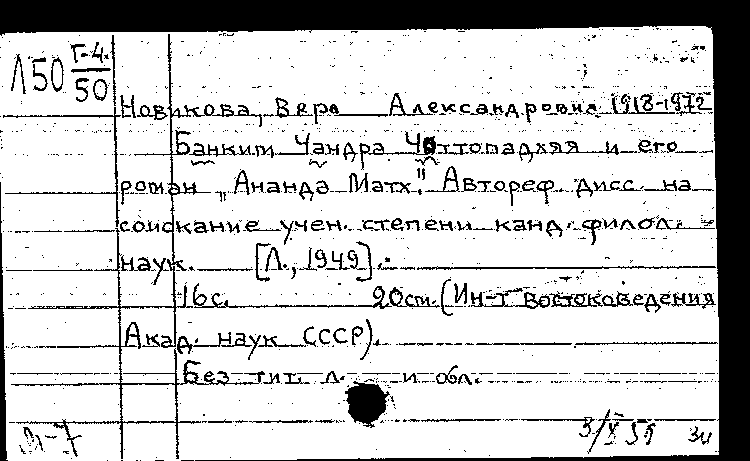 Л50 Г-4.
50
Новикова, Вера Александровна 1918-1972
Банким Чандра Чоттопадхяя и его
роман „Ананда Матх". Автореф. дисс. на
соискание учен. степени канд. филол.
наук. [Л., 1949].
16с. 20см. (Ин-т востоковедения
Акад. наук СССР).
Без тит. л. и обл.
3/X 51